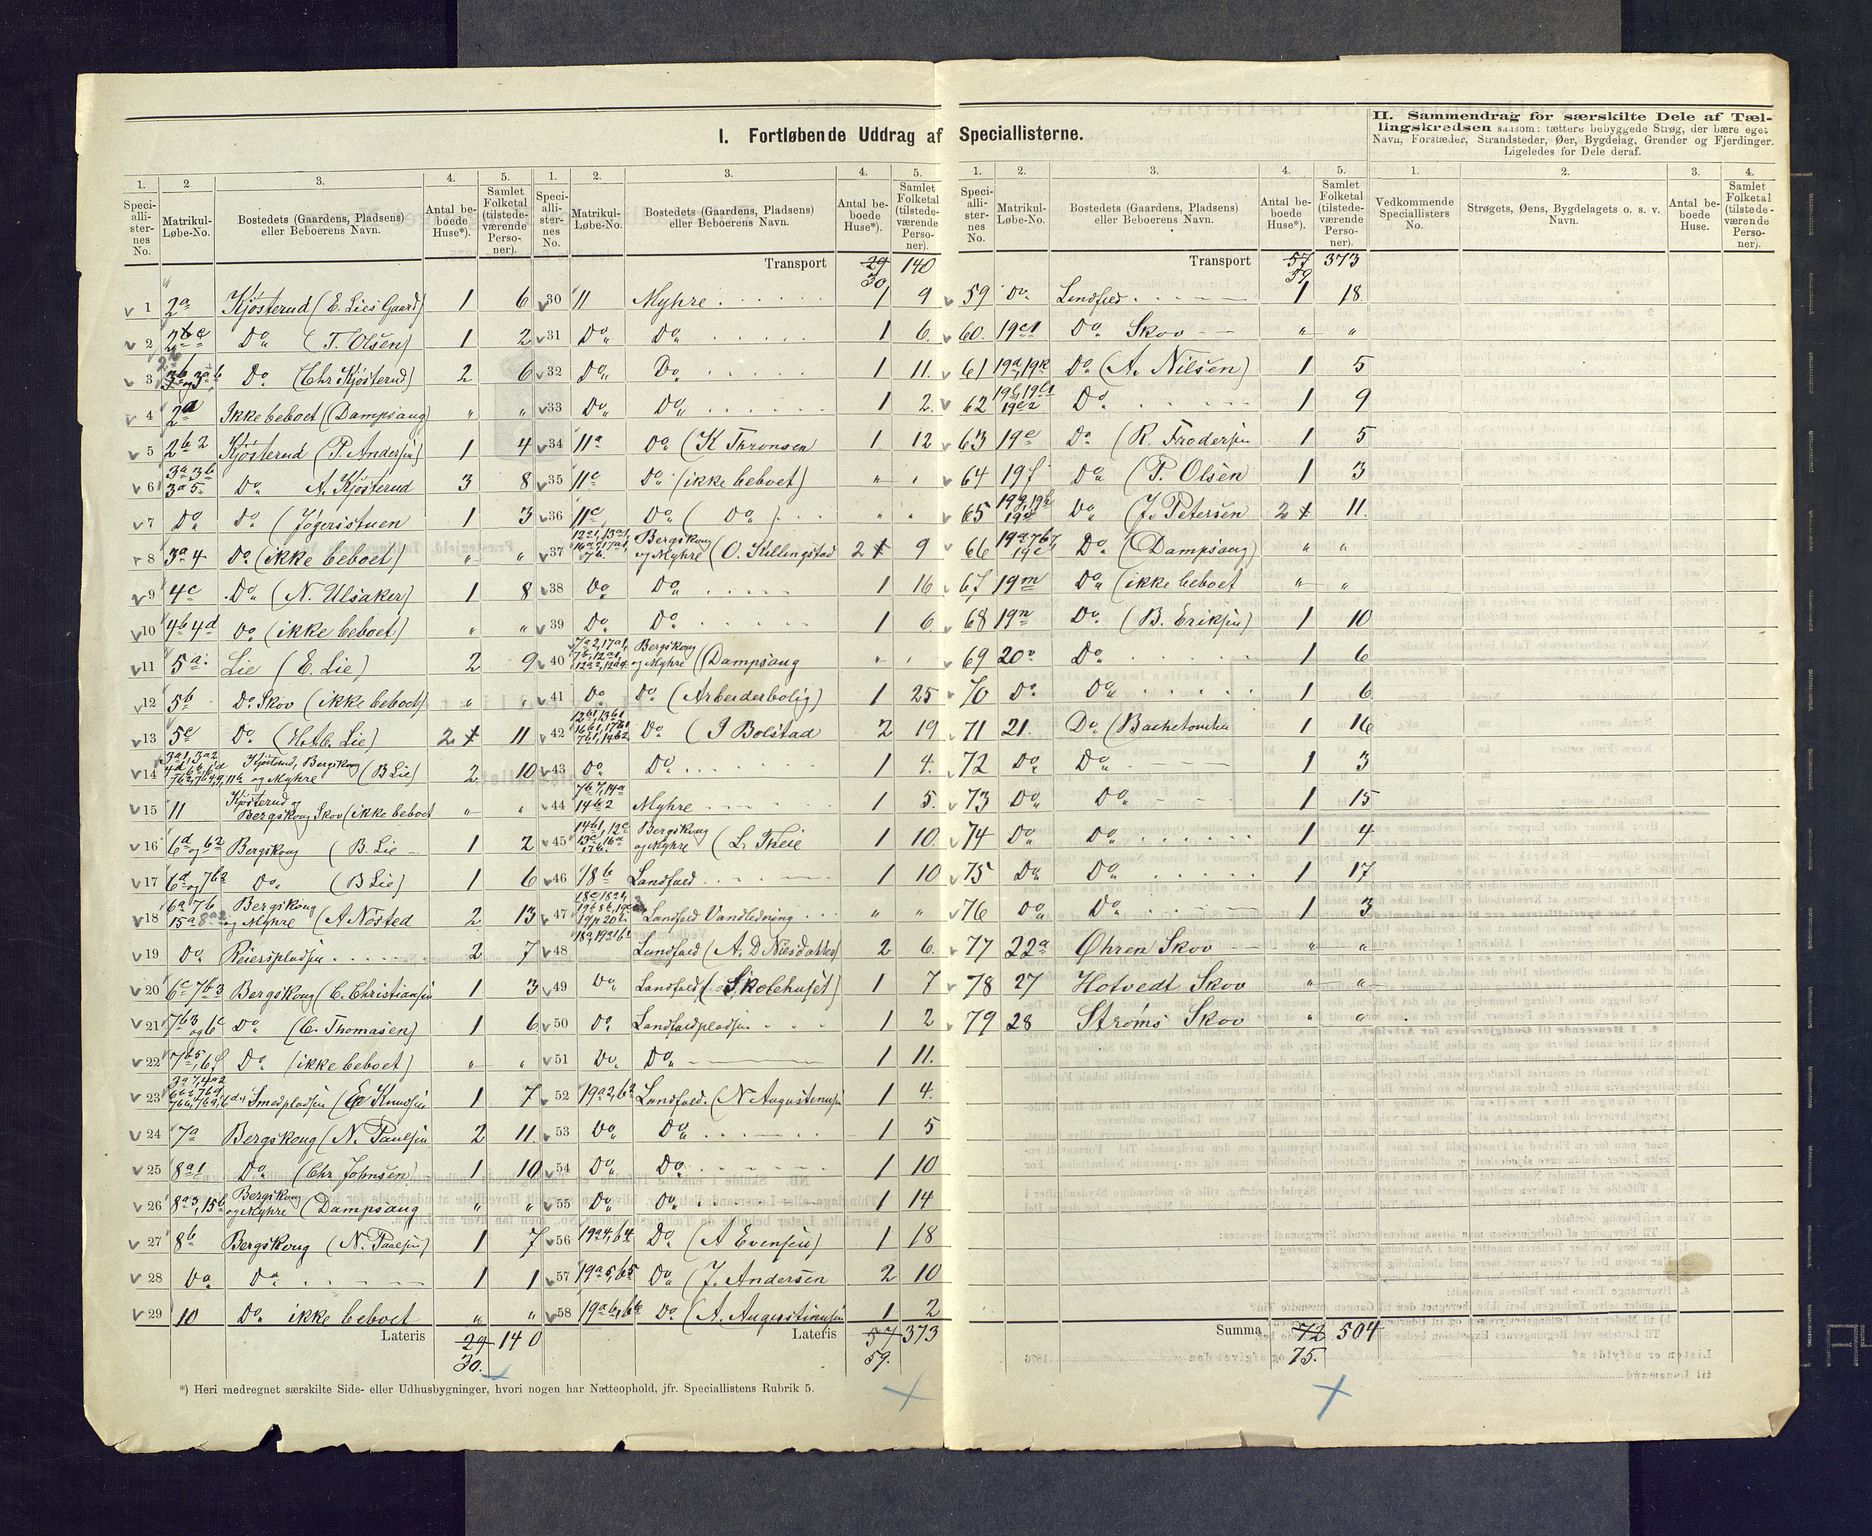 I. Fortløbende Uddrag af Speciallisterne.
II. Sammendrag for særskilte Dele af Tæl-
lingskredsen saasom: tættere bebyggede Strøg, der bære eget
Navn, Forstæder, Strandsteder, Øer, Bygdelag, Grender og Fjerdinger.
Ligeledes for Dele deraf.
1. 2. 3. 4. 5.
Speci-
allis-
sternes
No.
Matrikul-
Løbe-No.
Bostedets (Gaardens, Pladsens)
eller Beboerens Navn.
Antal be-
boede
Huse*).
Samlet
Folketal
(tilstede-
værende
Perso-
ner).
1 2a Kjösterud (E. Lies Gaard) 1 6
2 Do (T. Olsen) 1 2
3 Do (Chr Kjösterud) 2 6
4 2a Ikke beboet (Dampsaug) " "
5 2b2 Kjösterud (P. Andersen) 1 4
6 3a, 3b 3a5 Do A. Kjösterud 3 8
7 Do Do (Jögeristuen 1 3
8 3a4 Do (ikke beboet) " "
9 4c Do (N. Ulsaker) 1 8
10 4b 4d Do (ikke beboet) " "
11 5a Lie (E. Lie) 2 9
12 5b Do Skov (ikke beboet) " "
13 5c Do (Lie) 2 11
14 Kjösterud, Bergskoug og Myhre (B Lie) 2 10
15 11 Kjösterud og Bergskoug Skov (ikke beboet " "
16 6d og 6b2 Bergskoug (B. Lie 1 2
17 6d og 7b2 Do (B Lie) 1 6
18 6a 7b 15a 8a2 Bergskoug og Myhre (A Nösted 2 13
19 Do Reierspladsen 2 7
20 6c 7b3 Bergskoug (C. Christiansen 1 3
21 7b3 og 6c Do (C. Thomasen) 1 6
22 7b5, 6f Do (ikke beboet) " "
23 Smedpladsen (E Knudsen 1 7
24 7a Bergskoug (N. Paulsen 2 11
25 8a1 Do (Chr Johnsen) 1 10
26 8a3, 15b Bergskoug og Myhre (Dampsaug " "
27 8b Bergskoug (N. Paulsen) 1 7
28 Do Do 1 1
29 10 Do ikke beboet " "
Lateris 29 140
30.
*) Heri medregnet særskilte Side- eller Udhusbygninger, hvori nogen har Natteophold, jfr. Speciallistens Rubrik 5.
1. 2. 3. 4. 5.
Speci-
allis-
ternes
No.
Matrikul-
Løbe-No.
Bostedets (Gaardens, Pladsens)
eller Beboerens Navn.
Antal be-
boede
Huse*).
Samlet
Folketal
(tilstede-
værende
Perso-
ner).
Transport 29 140
30
30 11 Myhre 1 9
31 Do Do 1 6
32 Do Do 1 11
33 Do Do 1 2
34 11a Do (K Thronsen 1 12
35 11c Do (ikke beboet) " "
36 11c Do (Do) " "
37 Bergskoug og Myhre (O. Killingstad 2 9
38 Do Do 1 16
39 Do Do 1 6
40 Bergskoug og Myhre (Dampsaug " "
41 Do Do (Arbeiderbolig) 1 25
42 Do (J Bolstad 2 19
43 Do Do 1 4
44 14b2 Myhre 1 5
45 Bergskoug og Myhre (L. Theie 1 10
46 18b Landfald 1 10
47 Landfald Vandledning " "
48 Landfald (A. D 2 6
49 Do Landfald (Skolehuset) 1 7
50 Do Landfaldpladsen 1 2
51 Do Do 1 11
52 19a2, b2 Landfald. (N Augustinusen 1 4
53 Do Do 1 5
54 Do Do 1 10
55 Do Do 1 14
56 19a4, b4 Do (A Evensen) 1 18
57 19a5, b5 Do (J. Andersen 2 10
58 19a6, b6 Do (A. Augustinusen 1 2
Lateris 57 373
59.
1. 2. 3. 4. 5.
Speci-
allis-
ternes
No.
Matrikul-
Løbe-No.
Bostedets (Gaardens, Pladsens)
eller Beboerens Navn.
Antal be-
boede
Huse*).
Samlet
Folketal
(tilstede-
værende
Perso-
ner).
Transport 57 373
59
59 Do Landfald 1 18
60 19c1 Do Skov " "
61 19a, 19k Do (A. Nilsen) 1 5
62 Do 1 9
63 19e Do (R. Frodersen 1 5
64 19f Do (P. Olsen 1 3
65 Do (J. Petersen 2 11
66 Do (Dampsaug) " "
67 19m Do (ikke beboet " "
68 19n Do (B. Eriksen) 1 10
69 20 Do 1 6
70 Do Do 1 6
71 21 Do (Bachetomten 1 16
72 Do Do 1 3
73 Do Do 1 15
74 Do Do 1 4
75 Do Do 1 17
76 Do Do 1 3
77 22a Øhren Skov " "
78 27 Hotvedt Skov " "
79 28 Ströms Skov " "
Summa 72 504
75.
1. 2. 3. 4.
Vedkommende
Speciallisters
No.
Strøgets, Øens, Bygdelagets o. s. v.
Navn.
Antal be-
boede
Huse.
Samlet
Folketal
(tilstede-
værende
Perso-
ner).